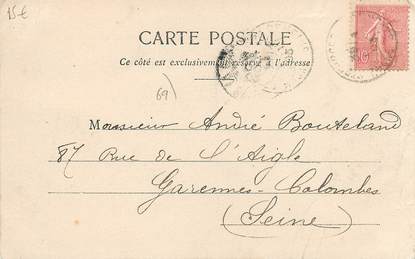 15 €
CARTE POSTALE
Ce côté est exclusivement réservé à l'adresse
69)
Monsieur André Bouteland
87 Rue de l'Aigle
Garennes-Colombes
(Seine)